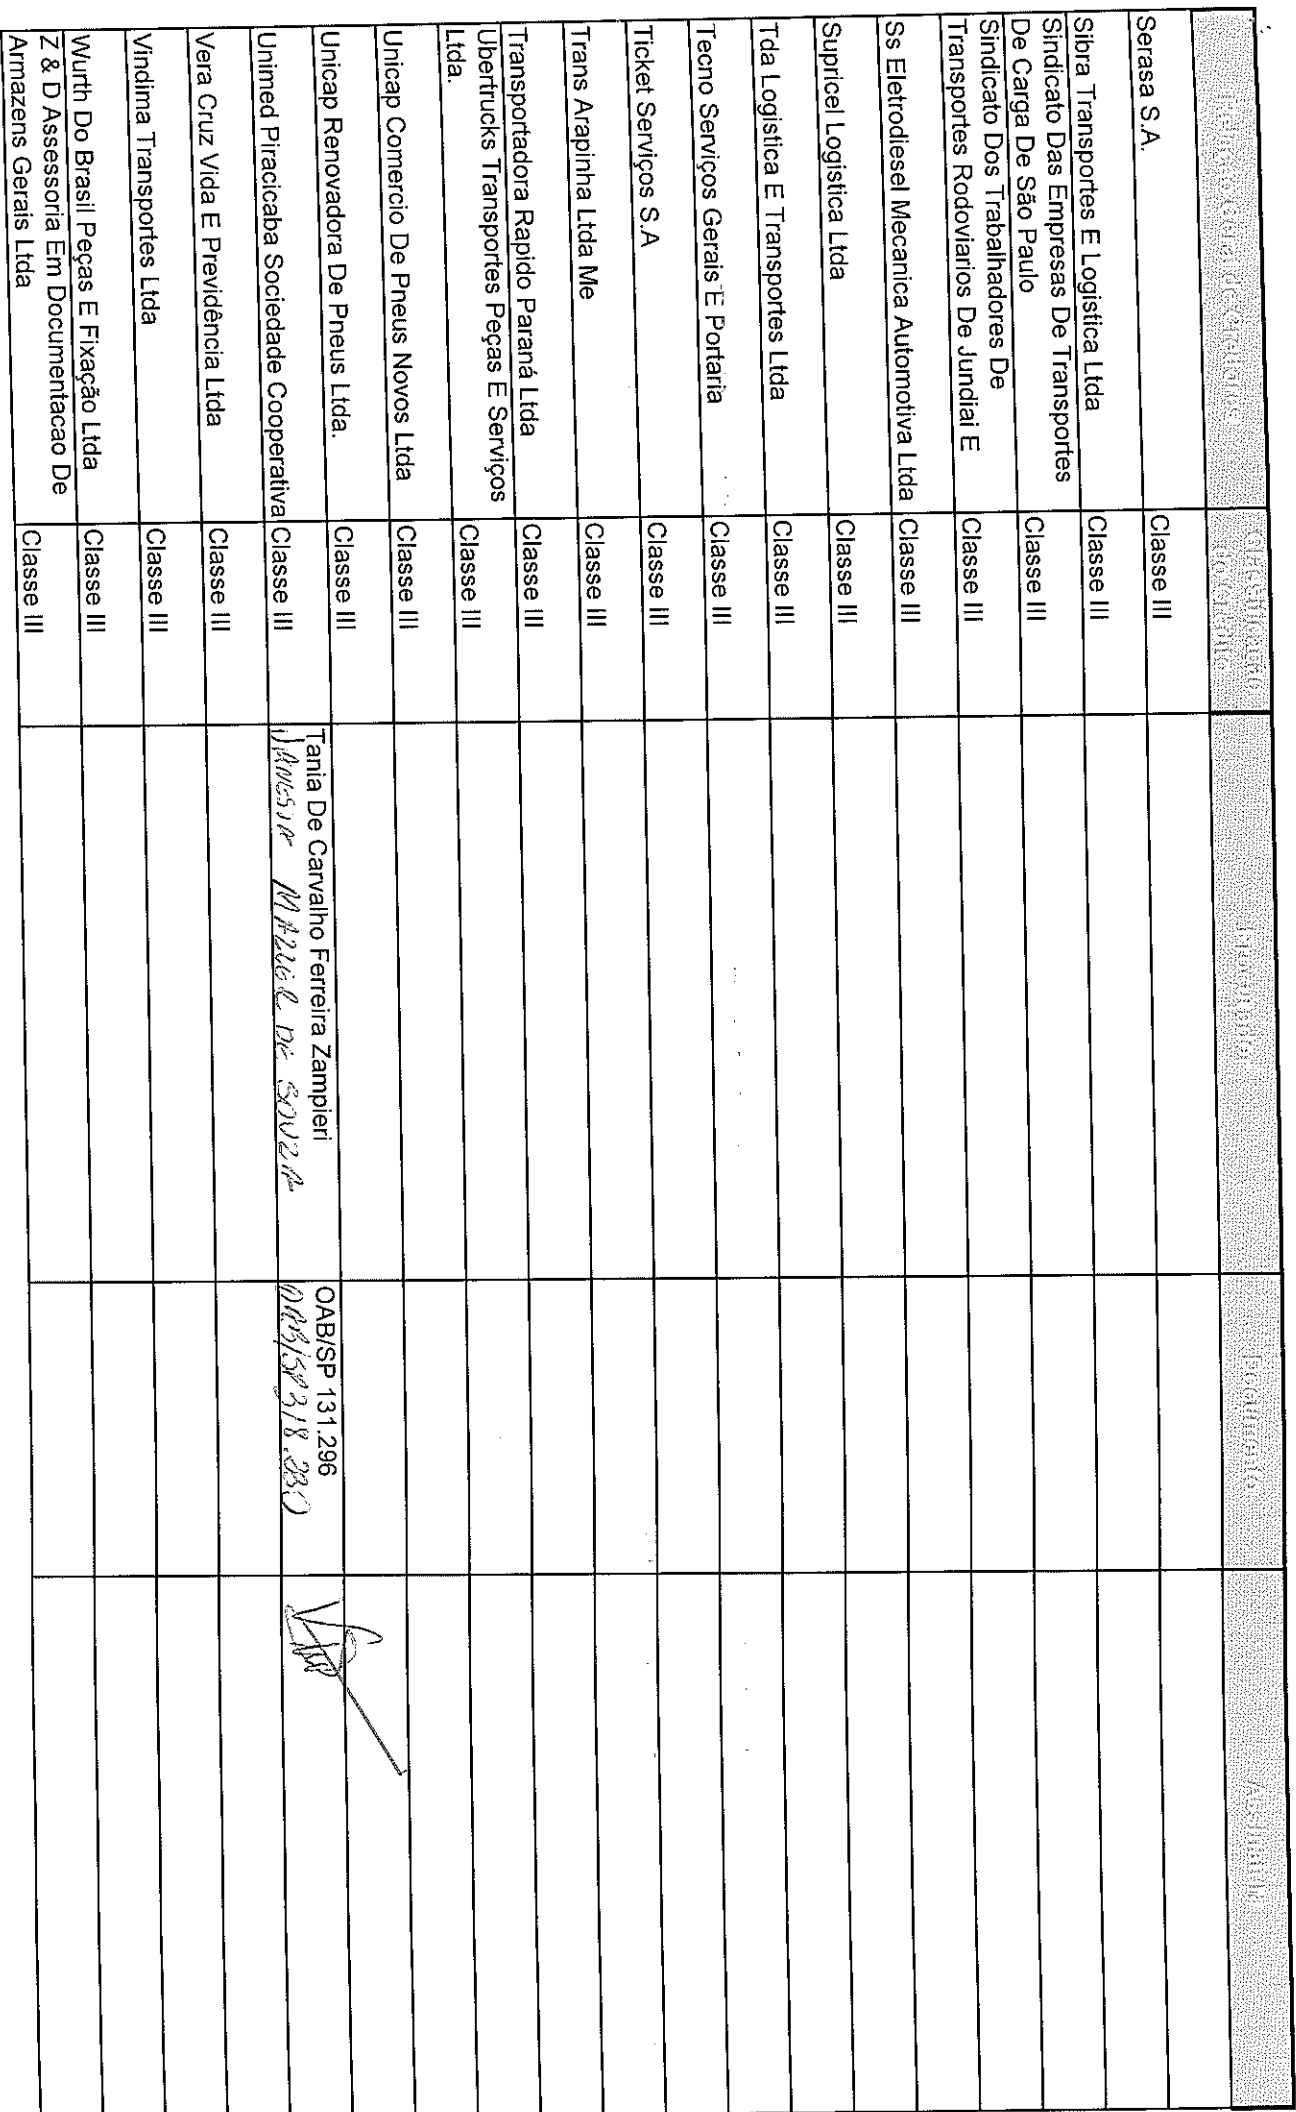 Relação Geral de Credores
Classificação
Procurador
Documento
Assinatura
Serasa S.A.
Classe III
Sibra Transportes E Logistica Ltda
Classe III
Sindicato Das Empresas De Transportes
De Carga De São Paulo
Classe III
Sindicato Dos Trabalhadores De
Transportes Rodoviarios De Jundiai E
Classe III
Ss Eletrodiesel Mecanica Automotiva Ltda
Classe III
Supricel Logistica Ltda
Classe III
Tda Logistica E Transportes Ltda
Classe III
Tecno Serviços Gerais E Portaria
Classe III
Ticket Serviços S.A
Classe III
Trans Arapinha Ltda Me
Classe III
Transportadora Rapido Paraná Ltda
Classe III
Ubertrucks Transportes Peças E Serviços
Ltda.
Classe III
Unicap Comercio De Pneus Novos Ltda
Classe III
Unicap Renovadora De Pneus Ltda.
Classe III
Unimed Piracicaba Sociedade Cooperativa
Classe III
Tania De Carvalho Ferreira Zampieri
DE SOUZA
OAB/SP 131.296
OAB/SP 318.230
Vera Cruz Vida E Previdência Ltda
Classe III
Vindima Transportes Ltda
Classe III
Wurth Do Brasil Peças E Fixação Ltda
Classe III
Z & D Assessoria Em Documentacao De
Armazens Gerais Ltda
Classe III